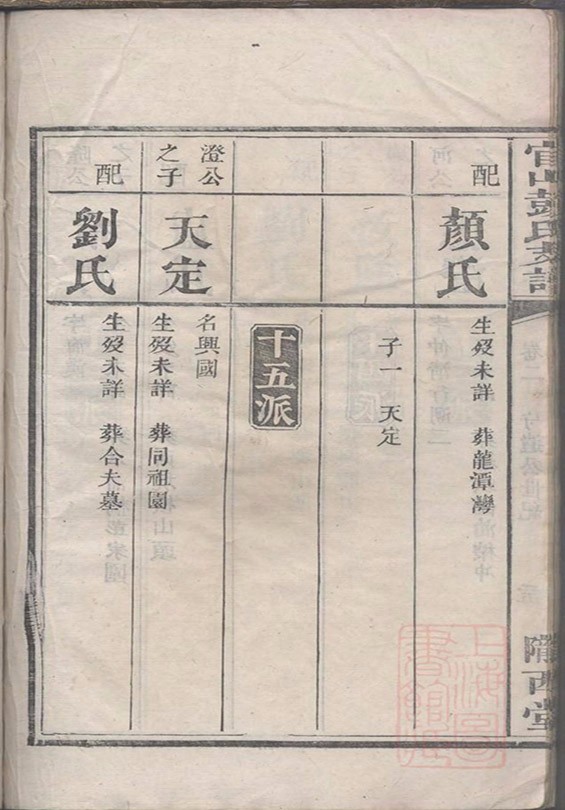 隴西堂
配
顏氏
生歿未詳 葬龍潭灣
子一 天定
十五派
澄公之子
天定
名興國
生歿未詳 葬同祖園
配
劉氏
生歿未詳 葬合夫墓